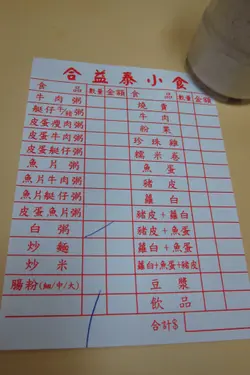 合益泰小食
食 品 數量 金額 食 品 數量 金額
牛肉粥 燒賣
艇仔牛肉粥 牛肉
皮蛋瘦肉粥 粉果
皮蛋牛肉粥 珍珠雞
皮蛋艇仔粥 糯米卷
魚片粥 魚蛋
魚片牛肉粥 豬皮
魚片艇仔粥 蘿白
皮蛋魚片粥 豬皮+蘿白
白粥 豬皮+魚蛋
炒麵 蘿白+魚蛋
炒米 蘿白+魚蛋+豬皮
腸粉(細/中/大) 豆漿
飲品
合計$